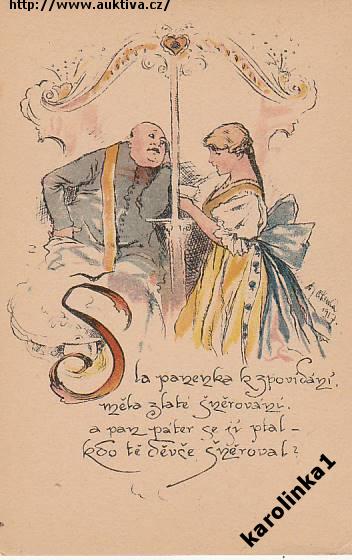 http://www.auktiva.cz/
Šla panenka k zpovídání,
měla zlaté šněrování,
a pan páter se jí ptal –
kdo tě děvče šněroval?
1917
karolinka1